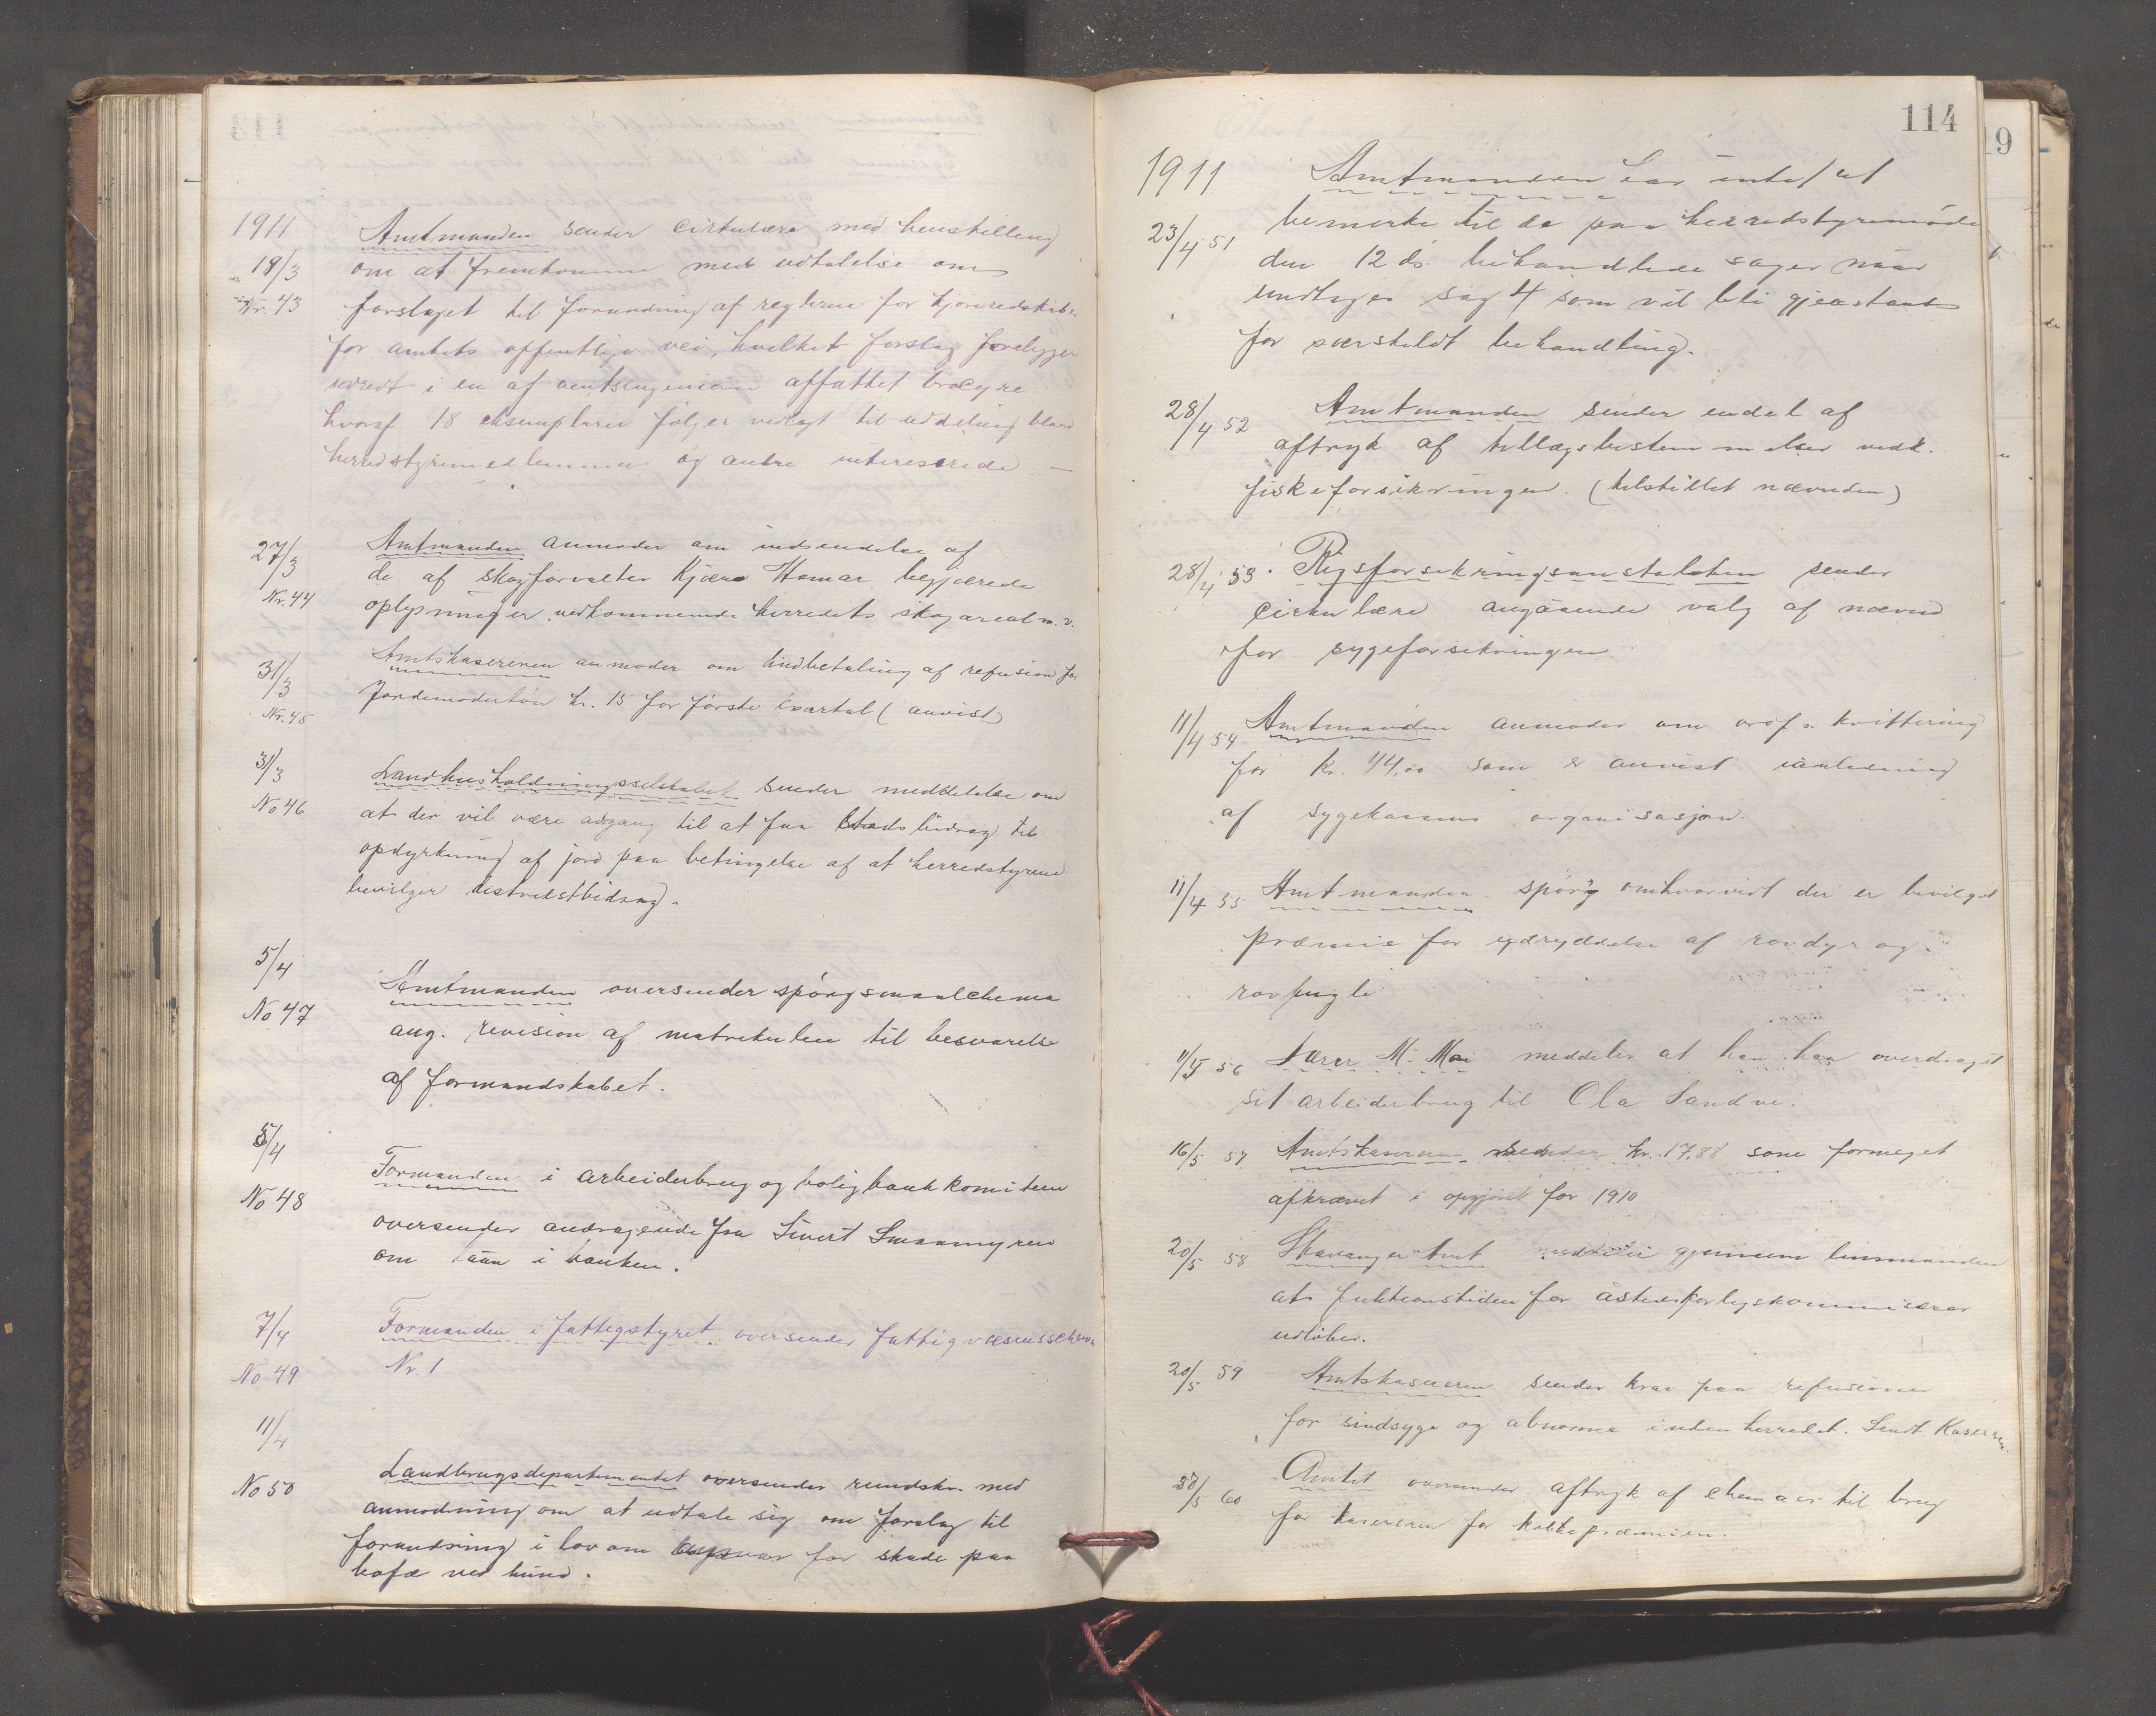 1911
Amtmanden sender cirkulære med henstilling
18/3
om at fremkomme med udtalelse om
Nr. 43
forslaget til forandring af reglerne for kjøreredskaber
for amtets offentlige vei, hvilket forslag foreligger
udredt i en af amtsingeniøren affattet brosjyre
hvoraf 18 eksemplarer følger vedlagt til uddeling bland
herredstyremedlemmer og andre interesserede —
27/3
Amtmanden anmoder om indsendelse af
Nr. 44
de af skogforvalter Kjær Hamar begjærede
oplysninger vedkommende herredets skogareal m. v.
31/3
Amtskasereren anmoder om indbetaling af refusion for
Nr. 45
Jordemoderløn kr. 15 for første kvartal (anvist)
31/3
Landhusholdningsselskabet sender meddelelse om
No 46
at der vil være adgang til at faa Stadsbidrag til
opdyrkning af jord paa betingelse af at herredstyrene
bevilger distriktsbidrag.
5/4
Amtmanden oversender spørgsmaalschema
No 47
ang. revision af matrikulen til besvarelse
af formandskabet.
5/4
Formanden i arbeiderbrug og boligbank komiteen
No 48
oversender andragende fra Sivert Smaamyren
om laan i banken.
7/4
Formanden i fattigstyret oversender fattigvæsensschema
No 49
Nr. 1
11/4
Landbrugsdepartementet oversender rundskr. med
No 50
anmodning om at udtale sig om forslag til
forandring i lov om ansvar for skade paa
bofæ ved hund.
114
19
1911
Amtmanden har intet at
23/4 51
bemerke til de paa herredstyremøde
den 12 ds. behandlede sager naar
undtages sag 4 som vil bli gjenstand
for særskildt behandling.
28/4 52
Amtmanden sender endel af
aftryk af tillægsbestemmelser vedk.
fiskeforsikringen. (tilstillet nævnden)
28/4 53.
Rigsforsikringsanstalten sender
cirkulære angaaende valg af nævnd
for sygeforsikringen
11/4 54
Amtmanden anmoder om kvittering
for Kr. 44,00 som er anvist i anledning
af sygekassens organisasjon.
11/4 55
Amtmanden spørg omhvorvidt der er bevilget
præmie for udryddelse af rovdyr og
rovfugle
11/5 56
Lærer M. Moi meddeler at han har overdraget
sit arbeiderbrug til Ola Sandve.
16/5 57
Amtskasereren sender kr. 17.88 som formeget
afkrævet i opgjøret for 1910
20/5 58
Stavanger Amt meddeler gjennem lensmanden
at funktionstiden for forligskommisærer
udløber.
20/5 59
Amtskasereren sender krav paa refusioner
for sindsyge og abnorme inden herredet. Sendt Kasereren.
30/5 60
Amtet oversender aftryk af chemaer til brug
for kasereren for kalkepræmien.